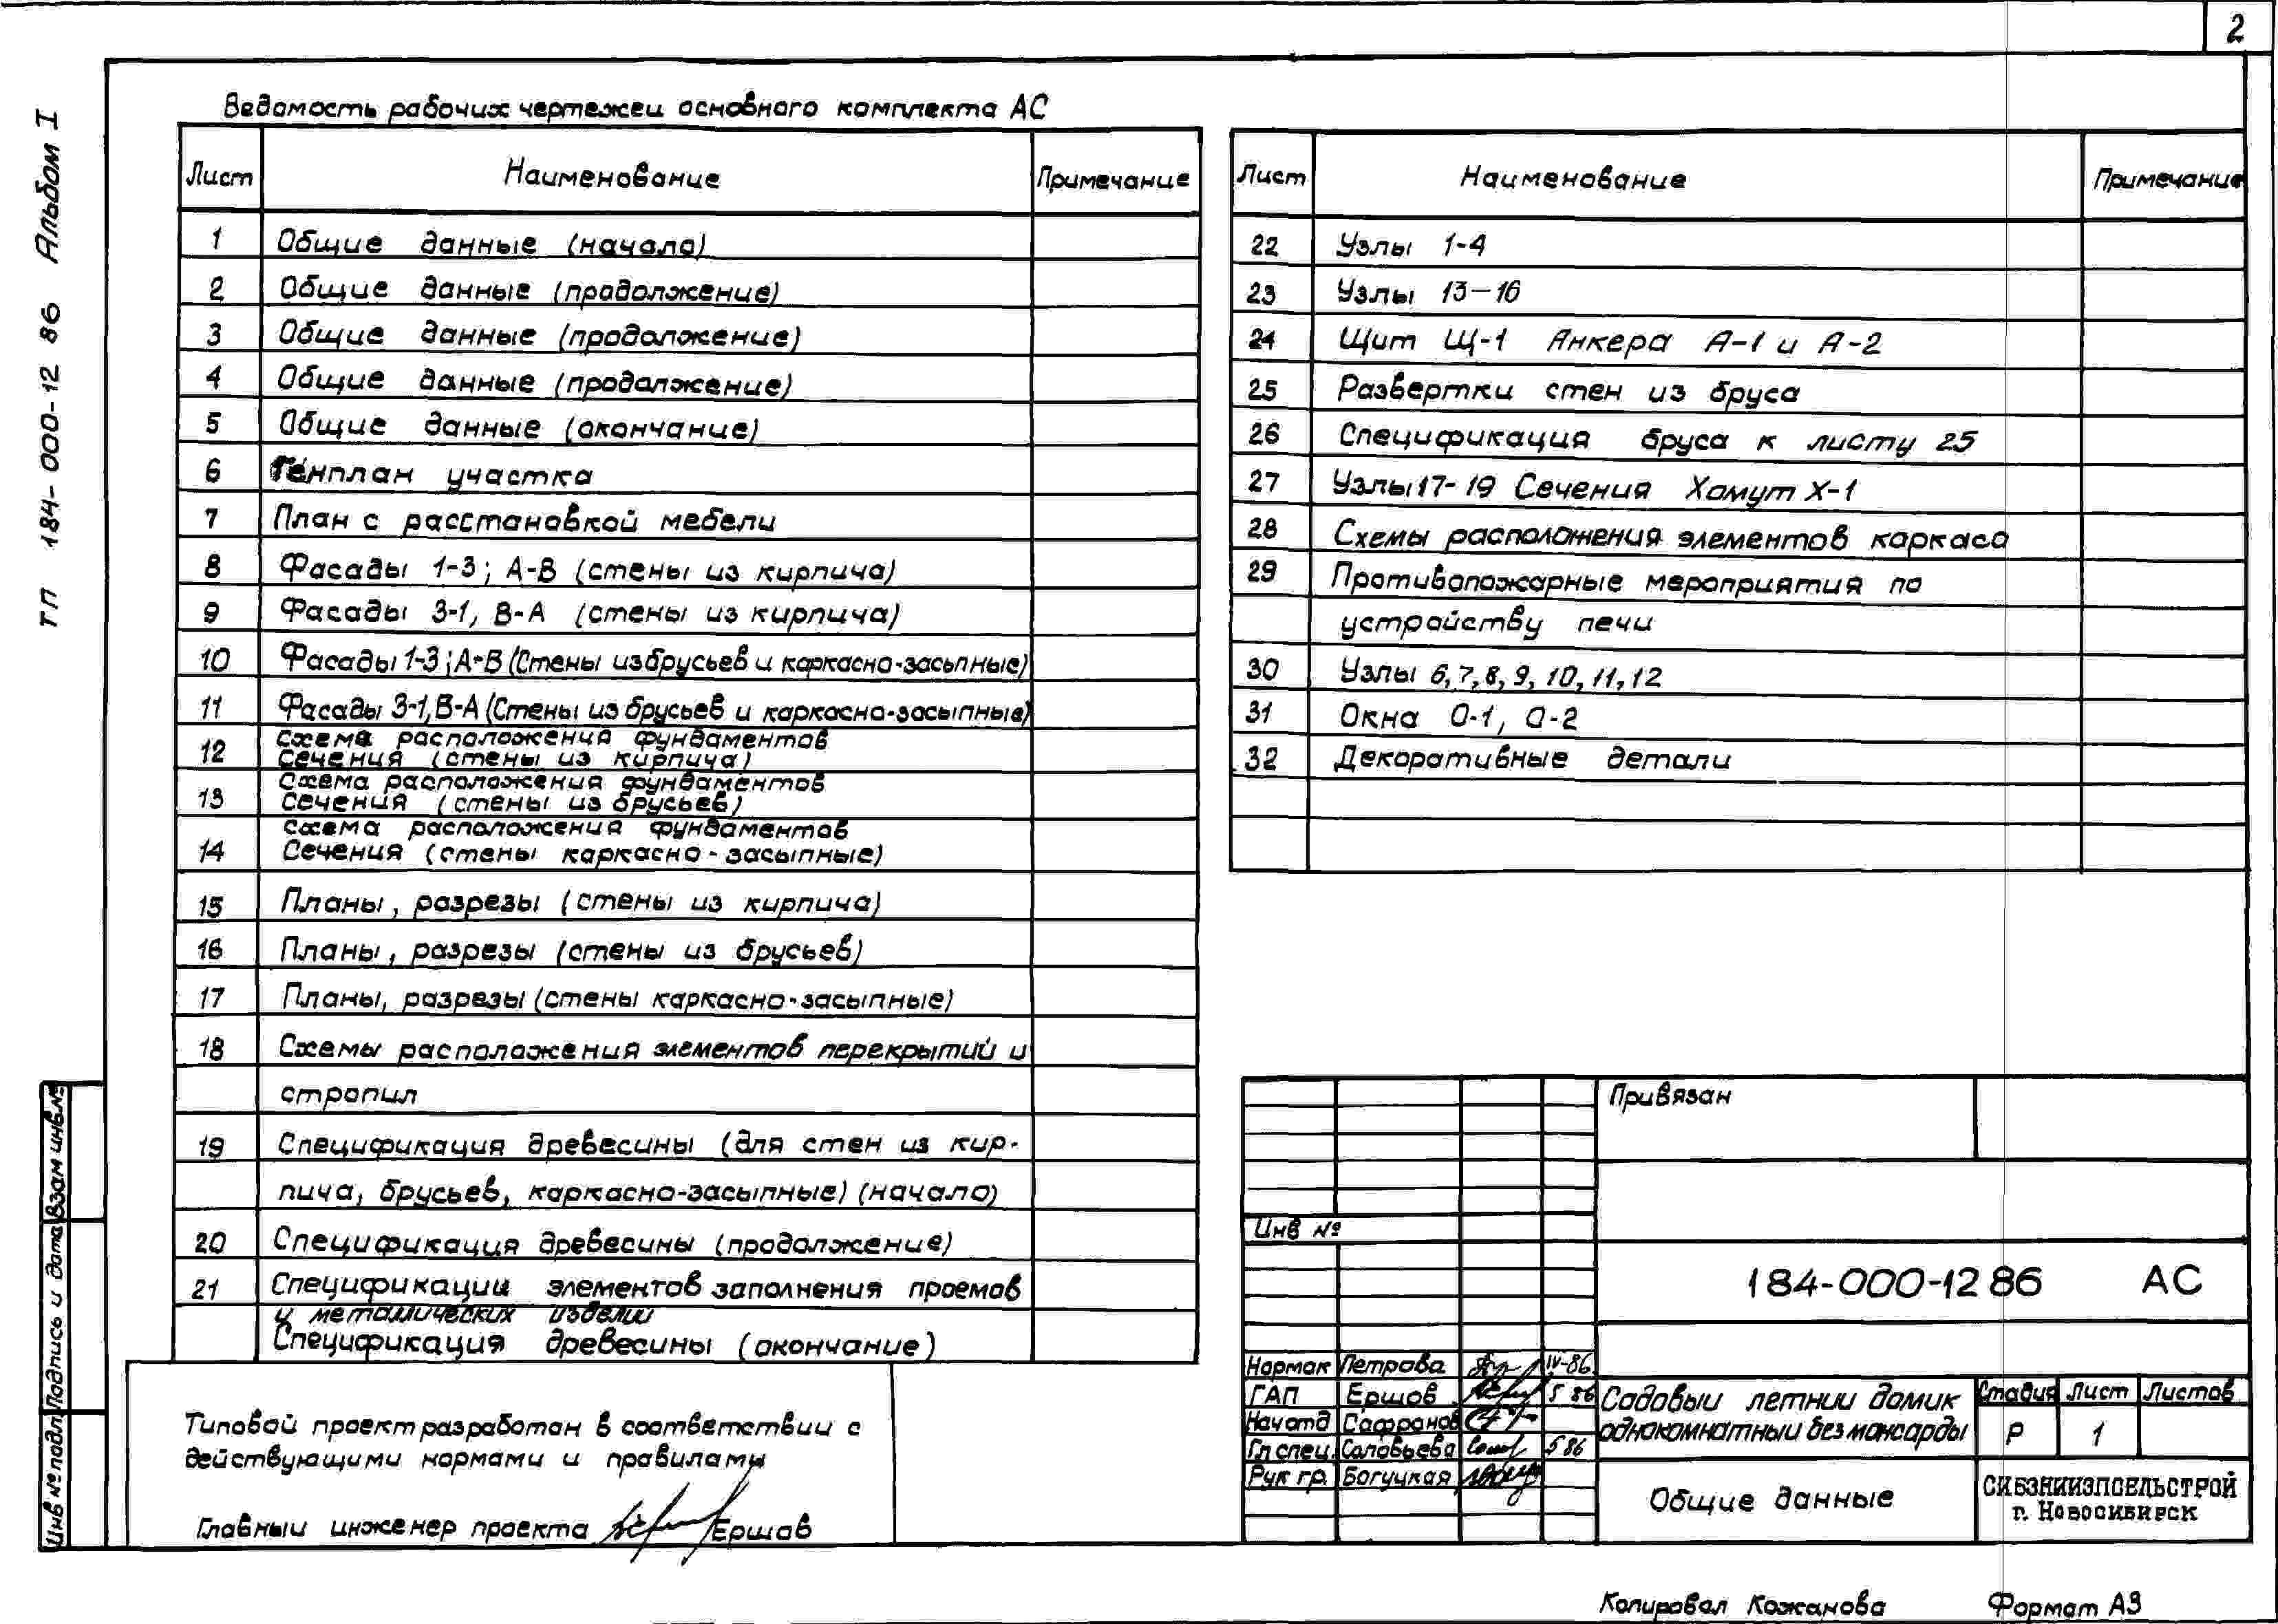 2
ТП 184-000-12 86 Альбом I
Ведомость рабочих чертежей основного комплекта АС
Лист Наименование Примечание
1 Общие данные (начало)
2 Общие данные (продолжение)
3 Общие данные (продолжение)
4 Общие данные (продолжение)
5 Общие данные (окончание)
6 Генплан участка
7 План с расстановкой мебели
8 Фасады 1-3; А-В (стены из кирпича)
9 Фасады 3-1, В-А (стены из кирпича)
10 Фасады 1-3; А-В (Стены из брусьев и каркасно-засыпные)
11 Фасады 3-1, В-А (Стены из брусьев и каркасно-засыпные)
12 Схема расположения фундаментов
Сечения (стены из кирпича)
13 Схема расположения фундаментов
Сечения (стены из брусьев)
14 Схема расположения фундаментов
Сечения (стены каркасно-засыпные)
15 Планы, разрезы (стены из кирпича)
16 Планы, разрезы (стены из брусьев)
17 Планы, разрезы (стены каркасно-засыпные)
18 Схемы расположения элементов перекрытий и
стропил
19 Спецификация древесины (для стен из кир-
пича, брусьев, каркасно-засыпные) (начало)
20 Спецификация древесины (продолжение)
21 Спецификации элементов заполнения проемов
и металлических изделий
Спецификация древесины (окончание)
Лист Наименование Примечание
22 Узлы 1-4
23 Узлы 13-16
24 Щит Щ-1 Анкера А-1 и А-2
25 Развертки стен из бруса
26 Спецификация бруса к листу 25
27 Узлы 17-19 Сечения Хомут Х-1
28 Схемы расположения элементов каркаса
29 Противопожарные мероприятия по
устройству печи
30 Узлы 6, 7, 8, 9, 10, 11, 12
31 Окна О-1, О-2
32 Декоративные детали
Типовой проект разработан в соответствии с
действующими нормами и правилами
Главный инженер проекта Ершов
Инв № подл Подпись и дата Взам инв №
Привязан
Инв №
184-000-12 86 АС
Нормок Петрова IV-86
ГАП Ершов 5 86
Нач отд Сафронов
Гл спец. Соловьева 5 86
Рук гр. Богуцкая
Садовый летний домик
однокомнатный без мансарды
Стадия Лист Листов
Р 1
Общие данные
СИБЗНИИЭПСЕЛЬСТРОЙ
г. Новосибирск
Копировал Кожанова Формат А3